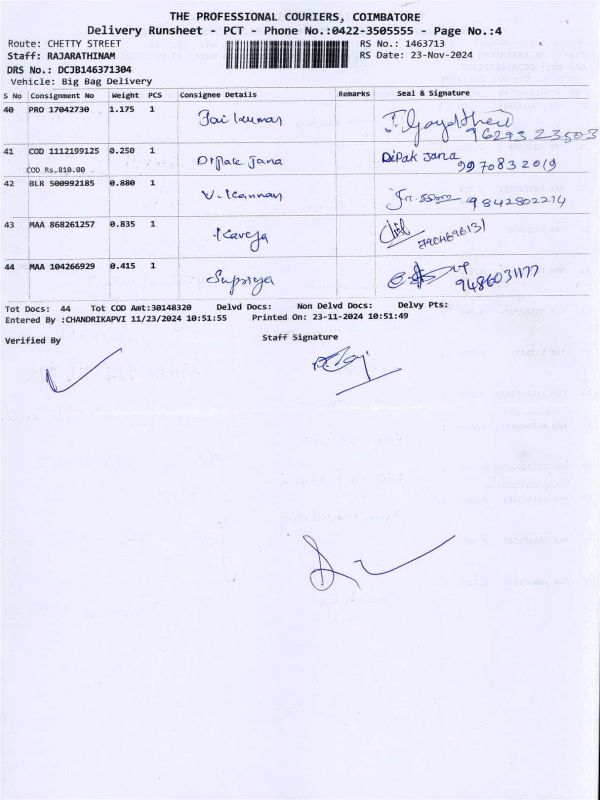 THE PROFESSIONAL COURIERS, COIMBATORE
Delivery Runsheet - PCT - Phone No.:0422-3505555 - Page No.:4
Route: CHETTY STREET RS No.: 1463713
Staff: RAJARATHINAM RS Date: 23-Nov-2024
DRS No.: DCJB146371304
Vehicle: Big Bag Delivery
S No Consignment No Weight PCS Consignee Details Remarks Seal & Signature
40 PRO 17042730 1.175 1 Jai kumar
96293 23503
41 COD 1112199125 0.250 1 Dipak Jana Dipak Jana
COD Rs.810.00 9970832019
42 BLR 500992185 0.880 1 V. Kannan 9842802214
43 MAA 868261257 0.835 1 Kaveja
44 MAA 104266929 0.415 1 Supriya 9486031177
Tot Docs: 44 Tot COD Amt:30148320 Delvd Docs: Non Delvd Docs: Delvy Pts:
Entered By :CHANDRIKAPVI 11/23/2024 10:51:55 Printed On: 23-11-2024 10:51:49
Verified By Staff Signature